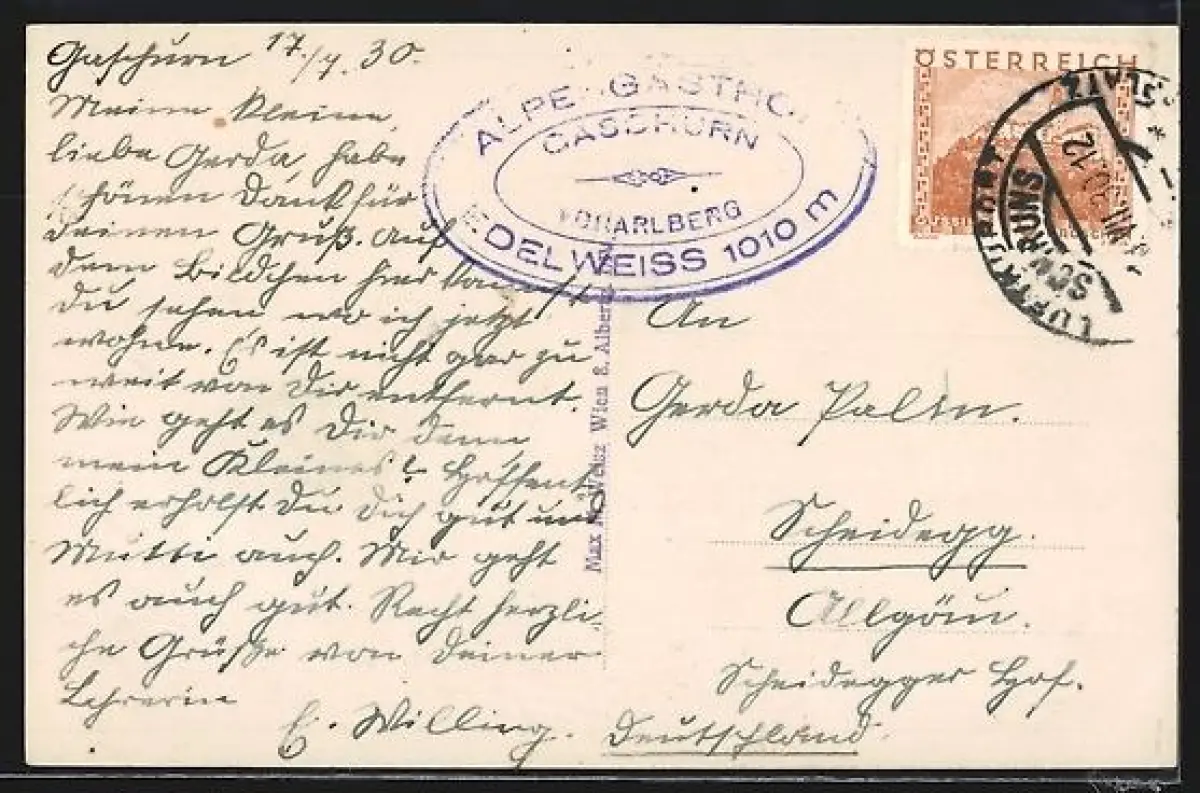 Gaschurn 17./7.30.
Meine kleine,
liebe Gerda, habe
schönen Dank für
Deinen Gruß. Auf
dem Bildchen hier kannst
Du sehen wo ich jetzt
wohne. Es ist nicht gar zu
weit von Dir entfernt.
Wie geht es Dir denn,
mein Kleines? Hoffent-
lich erholst Du Dich gut und
Mutti auch. Mir geht
es auch gut. Recht herzli-
che Grüße von Deiner
Lehrerin
E. Willing.
ALPENGASTHOF
GASCHURN
VORARLBERG
EDELWEISS 1010 m
ÖSTERREICH
LUFTKURORT
SCHRUNS
An
Gerda Palm.
Scheidegg.
Allgäu.
Scheidegger Hof.
Deutschland.